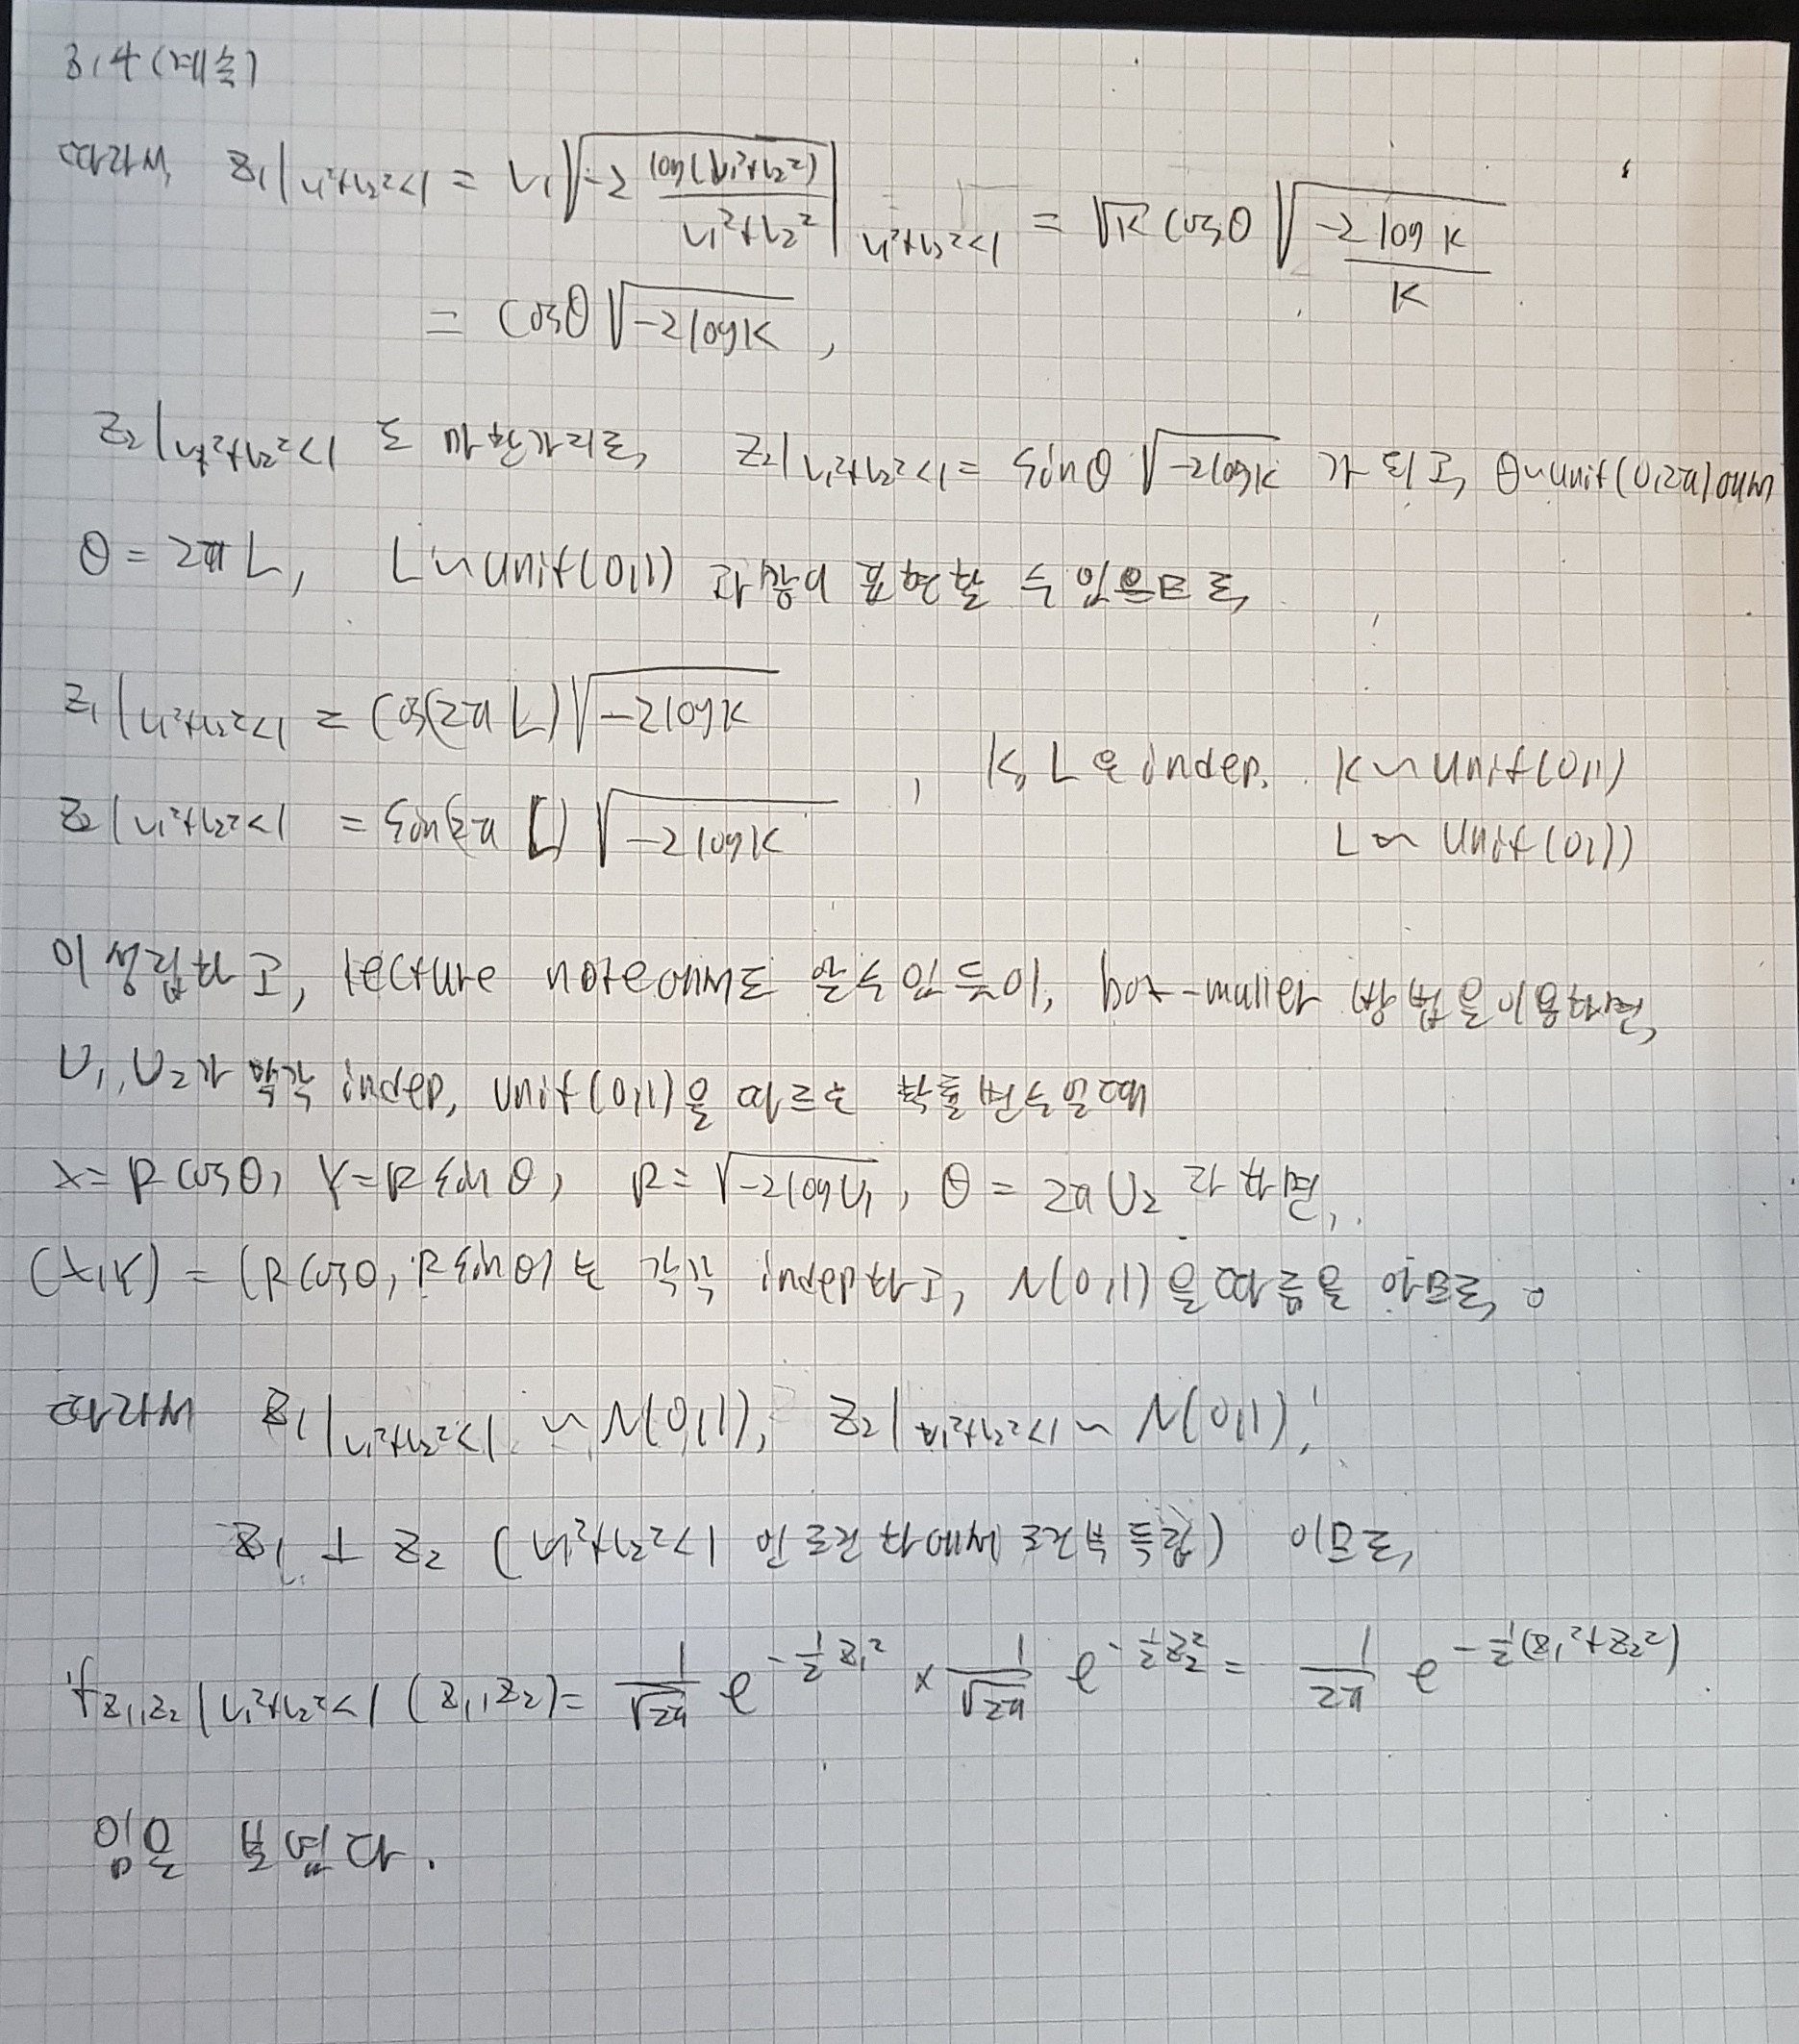 3.4 (계속)
따라서, Z₁|V₁²+V₂²<1 = V₁√(-2 log(V₁²+V₂²)/(V₁²+V₂²))|V₁²+V₂²<1 = √K cosθ √(-2 log K / K)
= cosθ √(-2logK),
Z₂|V₁²+V₂²<1 도 마찬가지로, Z₂|V₁²+V₂²<1 = sinθ √(-2logK) 가 되고, θ~unif(0,2π)에서
θ = 2πL, L~unif(0,1) 과 같이 표현할 수 있으므로,
Z₁|V₁²+V₂²<1 = cos(2πL)√(-2logK)
, K, L은 indep. K~unif(0,1)
Z₂|V₁²+V₂²<1 = sin(2πL)√(-2logK)
L~unif(0,1)
이 성립하고, lecture note에서도 알 수 있듯이, box-muller 방법을 이용하면,
U₁, U₂가 각각 indep, unif(0,1)을 따르는 확률변수일 때
X=R cosθ, Y=R sinθ, R=√(-2logU₁), θ = 2πU₂ 라 하면,
(X,Y) = (R cosθ, R sinθ)는 각각 indep하고, N(0,1)을 따름을 아므로,
따라서 Z₁|V₁²+V₂²<1 ~ N(0,1), Z₂|V₁²+V₂²<1 ~ N(0,1),
Z₁ ⊥ Z₂ (V₁²+V₂²<1 인 조건 하에서 조건부 독립) 이므로,
f Z₁,Z₂|V₁²+V₂²<1 (Z₁,Z₂) = 1/√2π e^(-½Z₁²) × 1/√2π e^(-½Z₂²) = 1/2π e^(-½(Z₁²+Z₂²))
임을 보였다.